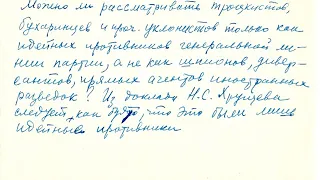 Можно ли рассматривать троцкистов,
бухаринцев и проч. уклонистов только как
идейных противников генеральной ли-
нии партии, а не как шпионов, дивер-
сантов, прямых агентов иностранных
разведок? Из доклада Н.С. Хрущева
следует, как будто, что это были лишь
идейные противники